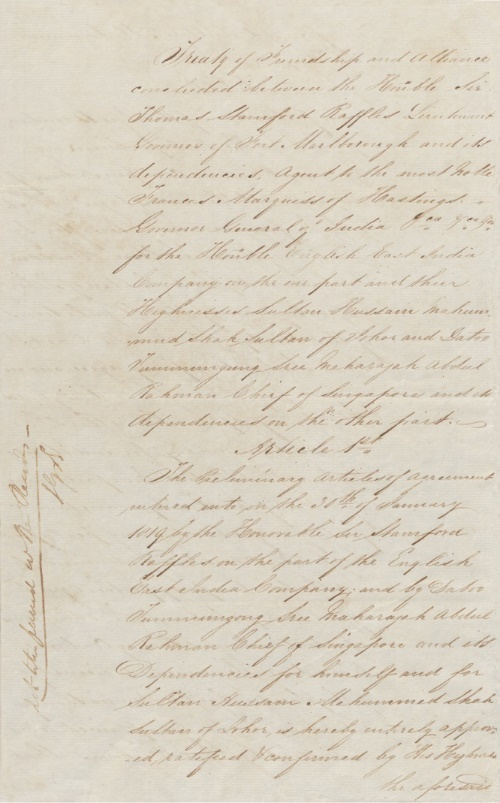 Treaty of Friendship and Alliance
concluded between the Honble Sir
Thomas Stamford Raffles Lieutenant
Governor of Fort Marlborough and its
dependencies, Agent to the most Noble
Francis Marquess of Hastings
Governor General of India &ca &ca &ca
for the Honble English East India
Company on the one part and their
Highnesses Sultan Hussain Mahum
mud Shah Sultan of Johor and Datoo
Tummungung Sree Maharajah Abdul
Rahman Chief of Singapore and its
dependencies on the other part.
Article 1st
The Preliminary Articles of agreement
entered into on the 30th of January
1819 by the Honorable Sir Stamford
Raffles on the part of the English
East India Company, and by Datoo
Tummungong Sree Maharajah Abdul
Rahman Chief of Singapore and its
Dependencies for himself and for
Sultan Hussain Mahummed Shah
Sultan of Johor, is hereby entirely approv
ed, ratified & confirmed by His Highness
the aforesaid